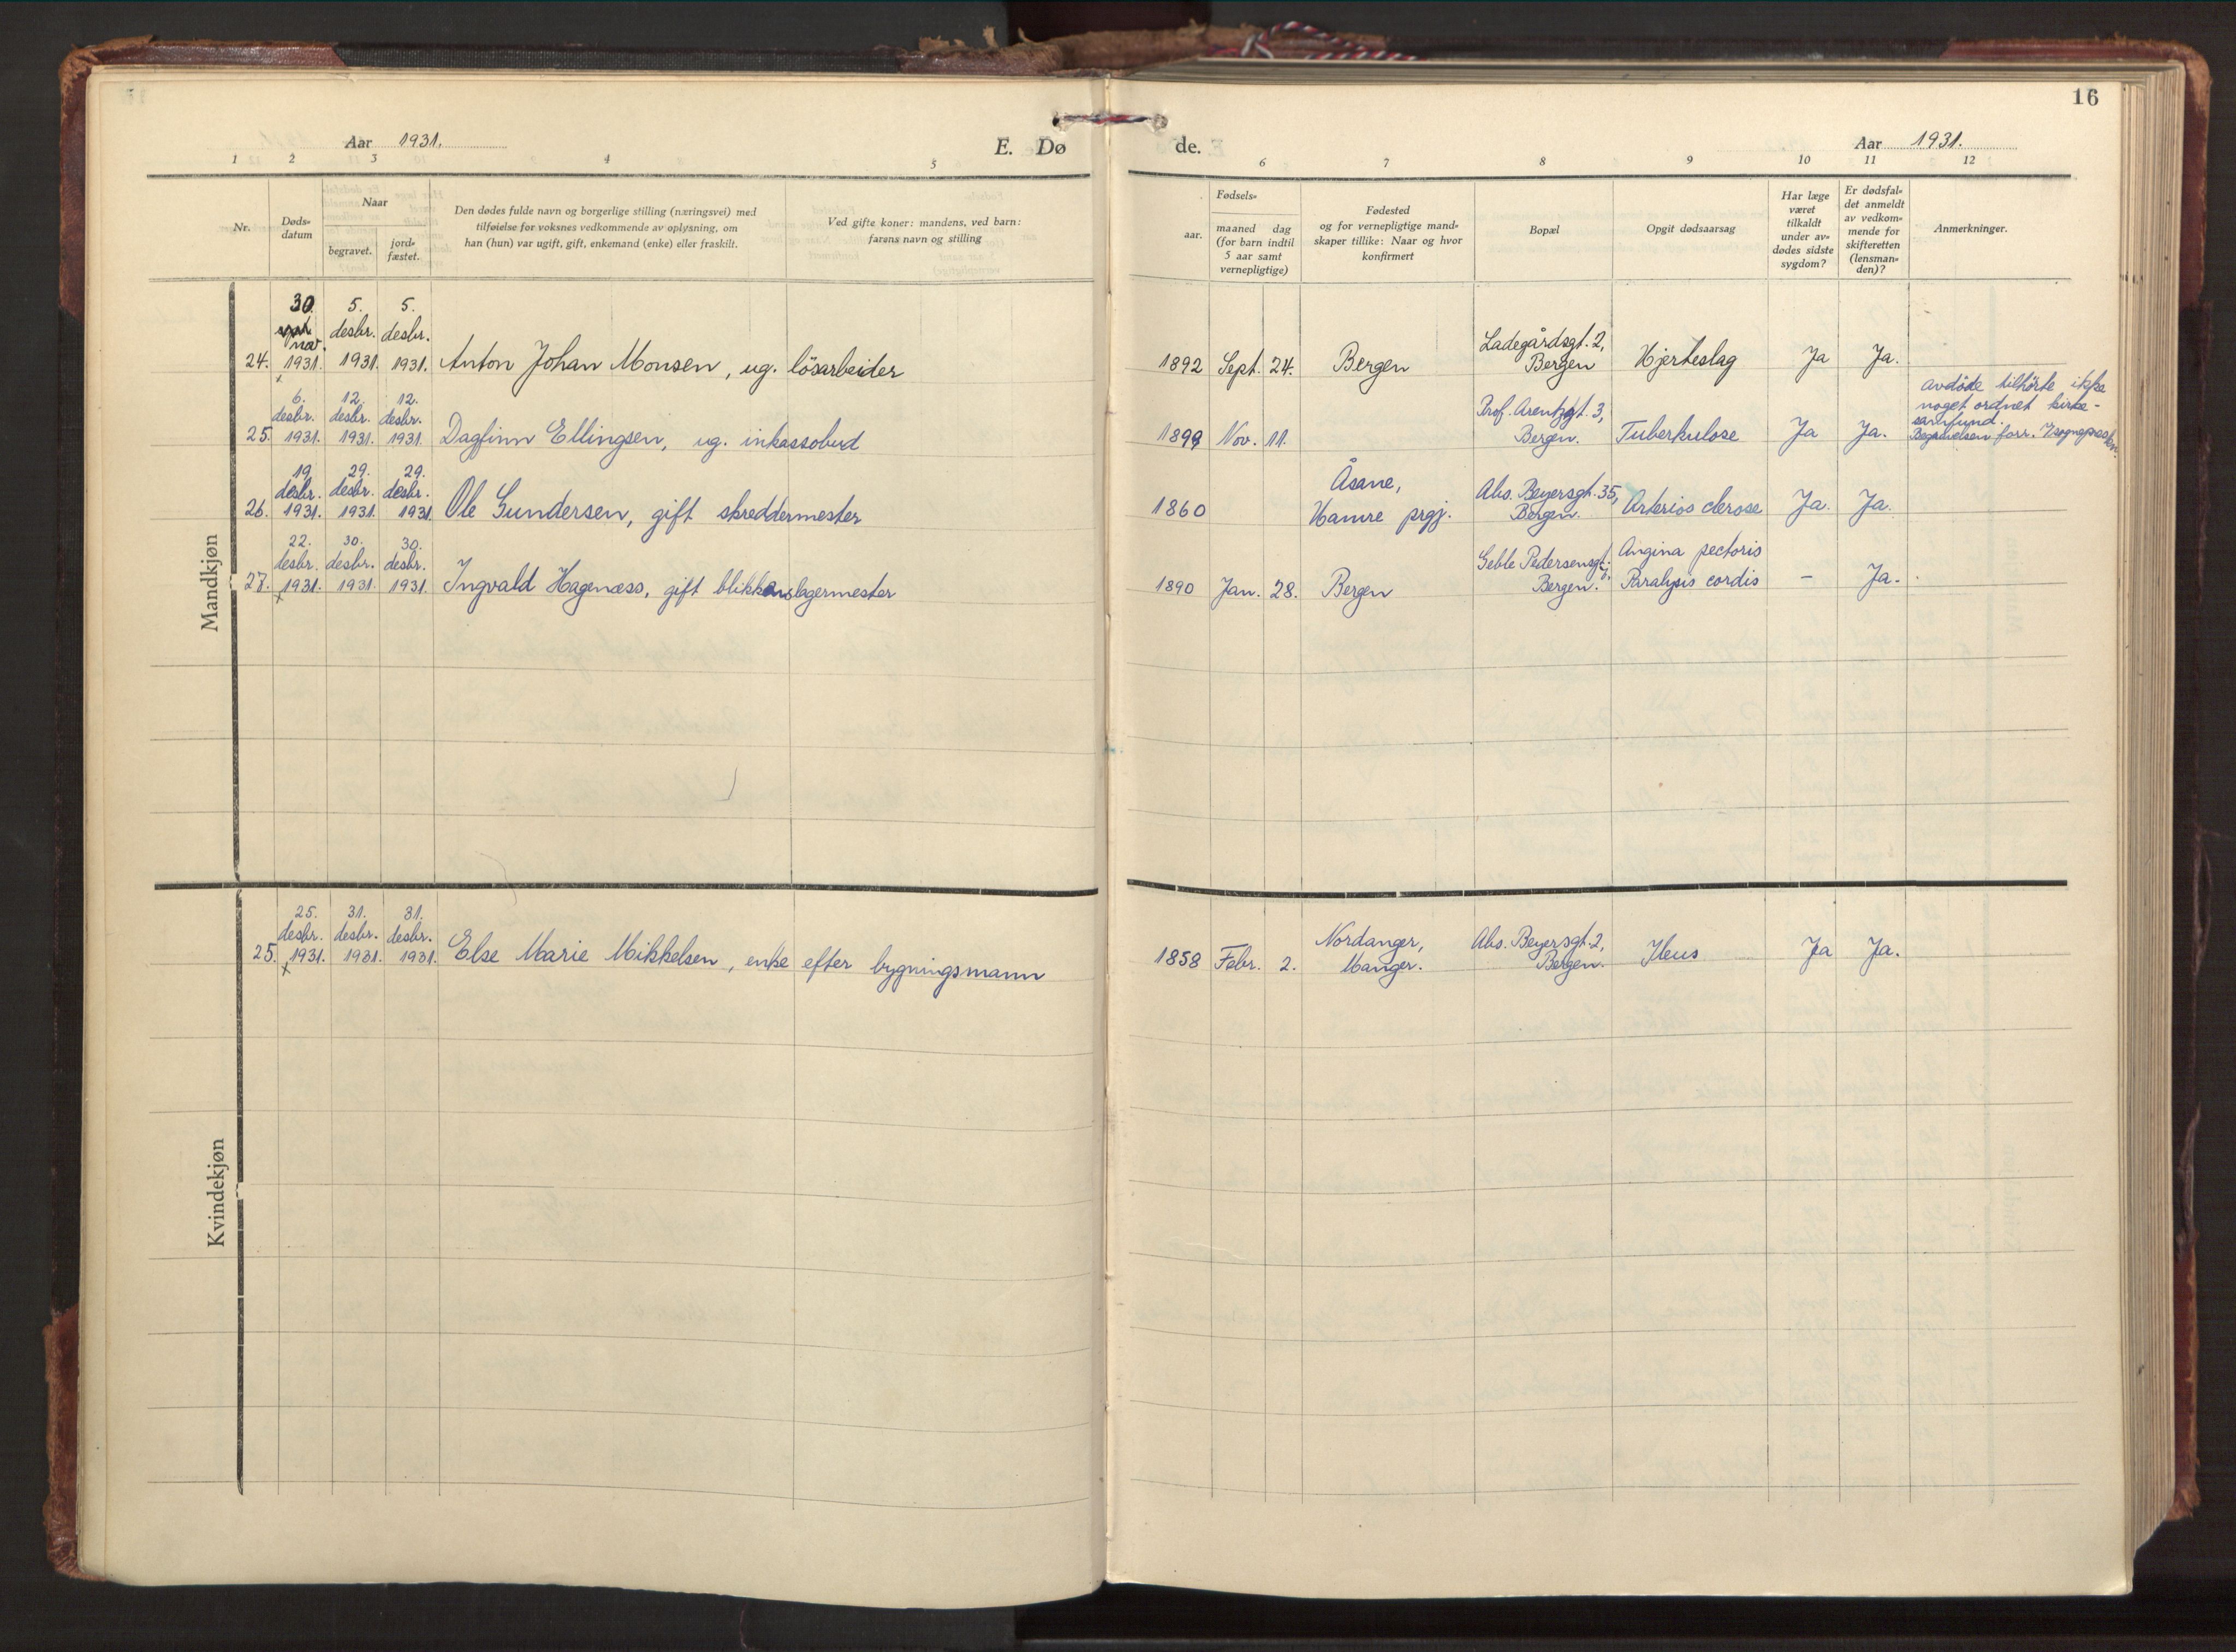 16
Aar 1931.
E. Dø
de.
Aar 1931.
1 2 3 4 5
6 7 8 9 10 11 12
Nr.
Døds-
datum
Naar
begravet.
jord-
fæstet.
Den dødes fulde navn og borgerlige stilling (næringsvei) med
tilføielse for voksnes vedkommende av oplysning, om
han (hun) var ugift, gift, enkemand (enke) eller fraskilt.
Ved gifte koner: mandens, ved barn:
farens navn og stilling
Fødsels-
aar.
maaned dag
(for barn indtil
5 aar samt
vernepligtige)
Fødested
og for vernepligtige mand-
skaper tillike: Naar og hvor
konfirmert
Bopæl
Opgit dødsaarsag
Har læge
været
tilkaldt
under av-
dødes sidste
sygdom?
Er dødsfal-
det anmeldt
av vedkom-
mende for
skifteretten
(lensman-
den)?
Anmerkninger.
Mandkjøn
30. 5. 5.
nov. desbr. desbr.
24. 1931. 1931. 1931. Anton Johan Monsen, ug. lösarbeider
1892 Sept. 24. Bergen
Ladegårdsgt. 2,
Bergen
Hjerteslag Ja Ja.
6. 12. 12.
desbr. desbr. desbr.
25. 1931. 1931. 1931. Dagfinn Ellingsen, ug. inkassobud
1899 Nov. 11.
Prof. Arentzgt. 3,
Bergen.
Tuberkulose Ja Ja.
avdöde tilhörte ikke
noget ordnet kirke-
samfund.
Begravelsen forr. 
19. 29. 29.
desbr. desbr. desbr.
26. 1931. 1931. 1931. Ole Gundersen, gift skreddermester
1860
Åsane,
Hamre prgj.
Abs. Beyersgt. 35,
Bergen.
Arteriosclerose Ja. Ja.
22. 30. 30.
desbr. desbr. desbr.
27. 1931. 1931. 1931. Ingvald Hagenæss, gift blikkenslagermester
1890 Jan. 28. Bergen
Geble Pedersensgt.
Bergen.
Angina pectoris
Paralysis cordis
- Ja.
Kvindekjøn
25. 31. 31.
desbr. desbr. desbr.
25. 1931. 1931. 1931. Else Marie Mikkelsen, enke efter bygningsmann
1858 Febr. 2.
Nordanger,
Manger.
Abs. Beyersgt. 2,
Bergen.
Ileus Ja Ja.